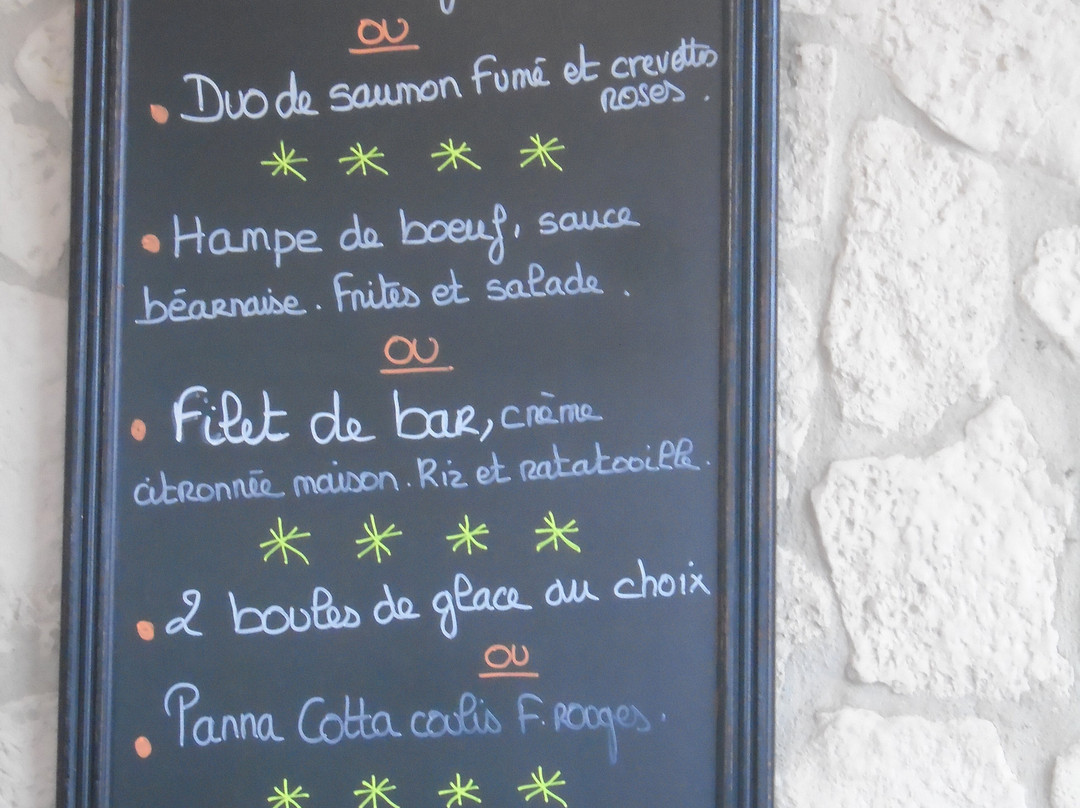 OU
• Duo de saumon fumé et crevettes
roses.
* * * *
• Hampe de boeuf, sauce
béarnaise. Frites et salade.
OU
• Filet de bar, crème
citronnée maison. Riz et ratatouille.
* * * *
• 2 boules de glace au choix
OU
• Panna Cotta coulis F. rouges.
* * * *